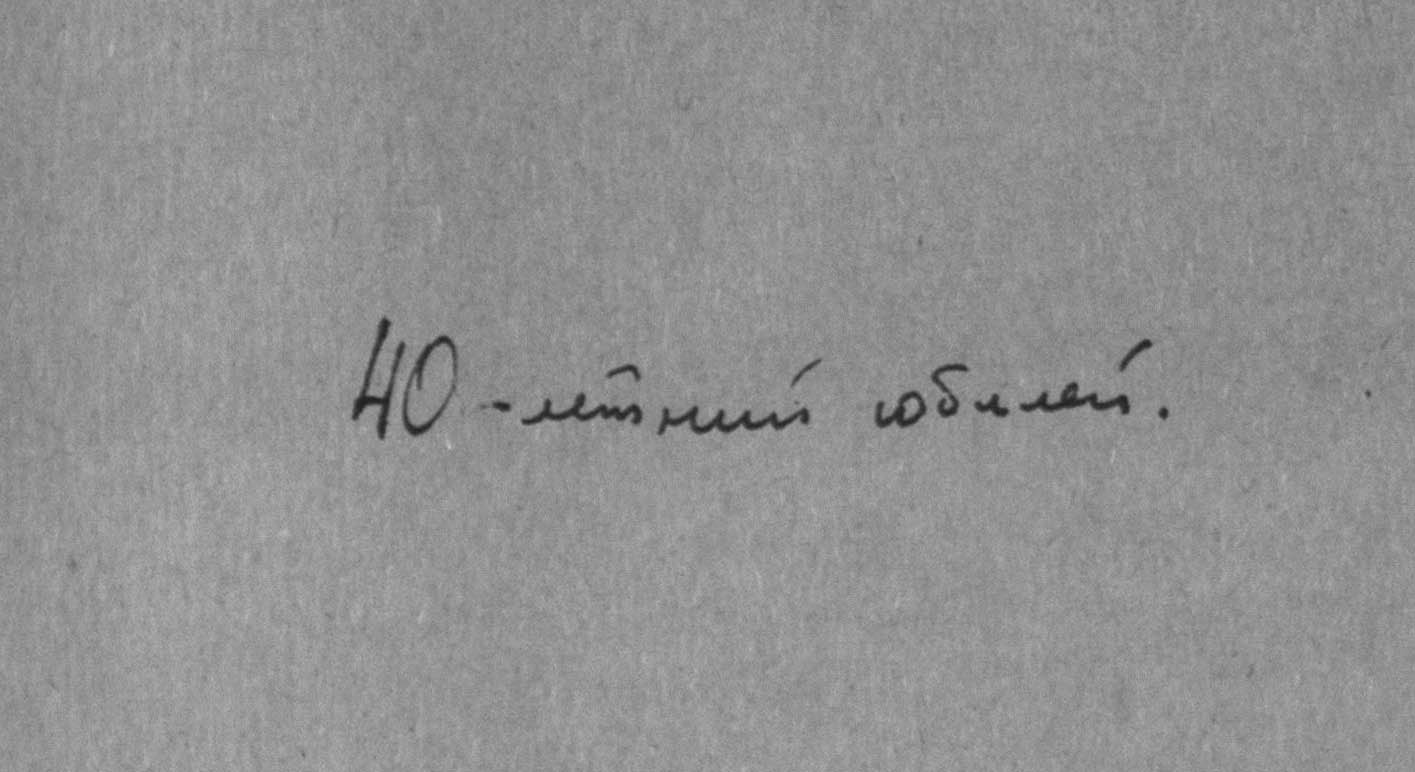 40-летний юбилей.